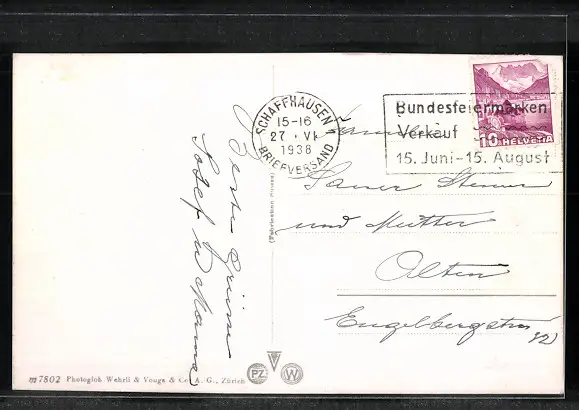 SCHAFFHAUSEN
15-16
27 · VI
1938
BRIEFVERSAND
Bundesfeiermarken
Verkauf
15. Juni-15. August
10 HELVETIA
Beste Grüsse
Josef u
Sauser
und Mutter
Olten
Engelbergstr
32
m7802 Photoglob Wehrli & Vouga & Co. A. G., Zürich
PZ W